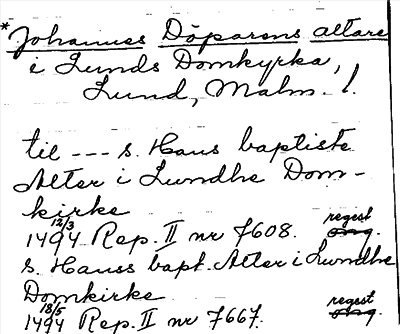 *Johannes Döparens altare
i Lunds Domkyrka,
Lund, Malm. l.
til --- s. Hans baptiste
Alter i Lundhe Dom-
kirke
12/3
1494 Rep. II nr 7608. regest orig.
s. Hanss bapt. Alter i Lundhe
Domkirke
18/5
1494 Rep. II nr 7667. regest orig.